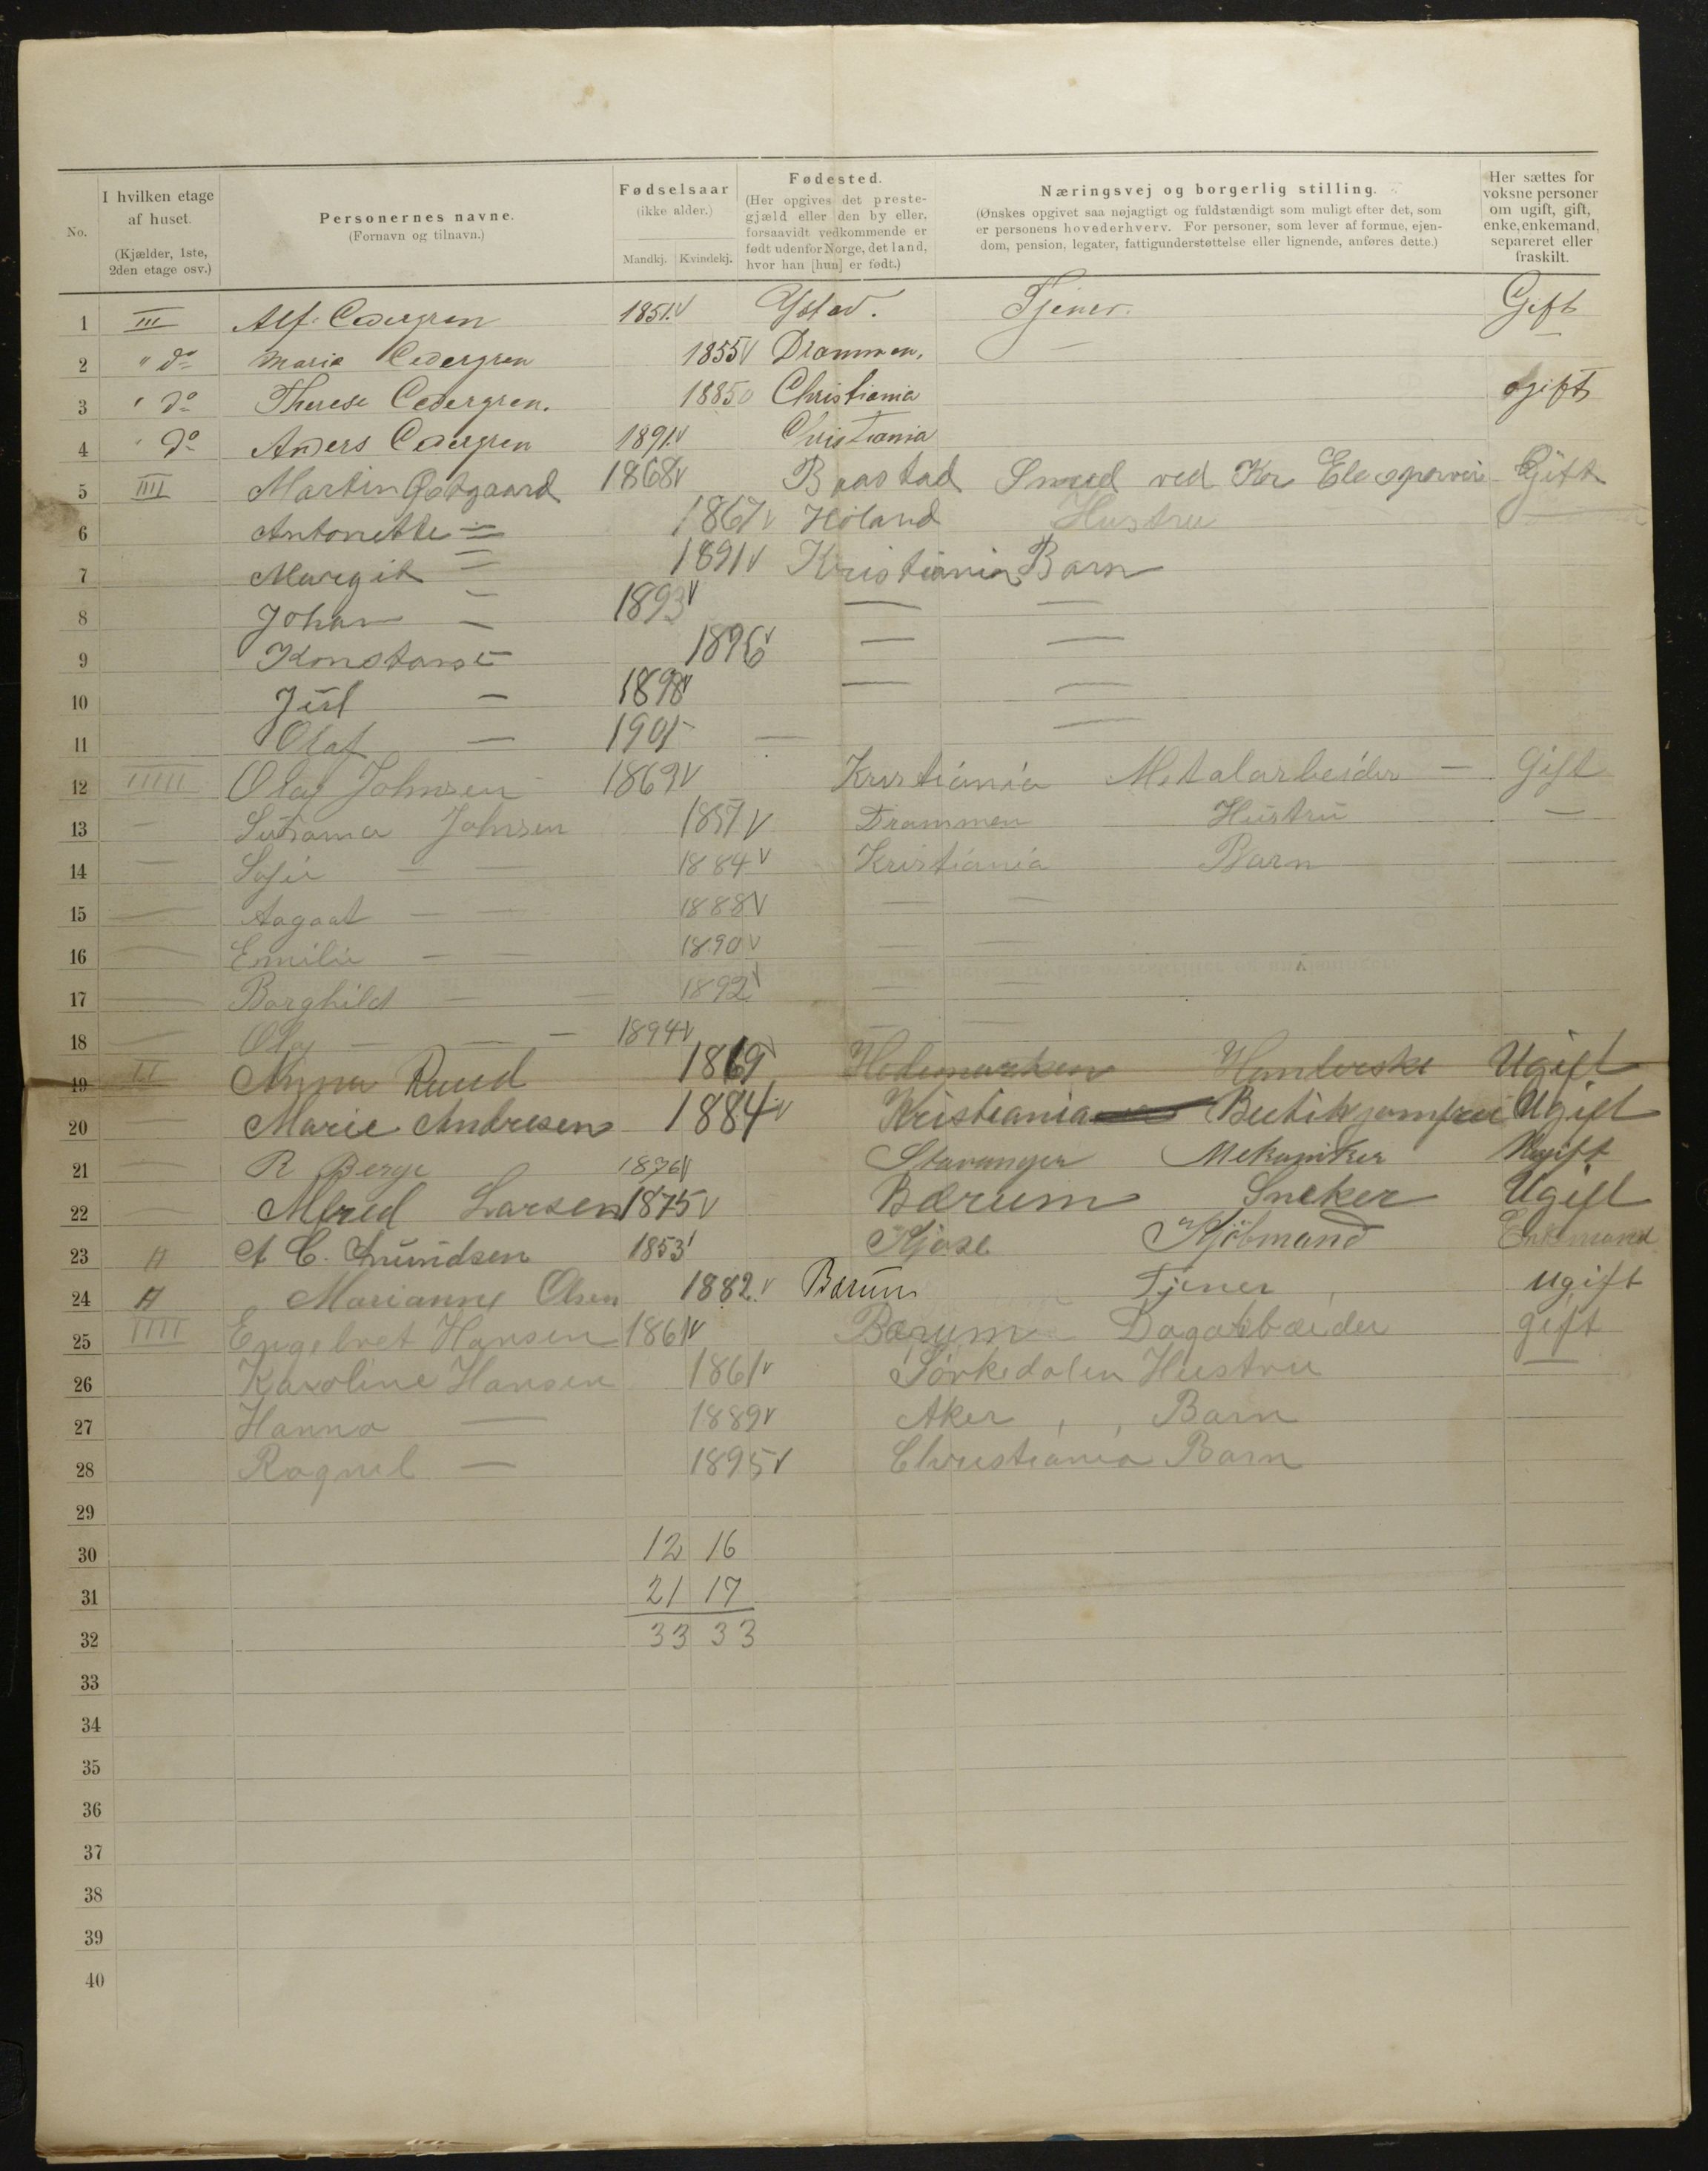 No.
I hvilken etage af huset. (Kjælder, 1ste, 2den etage osv.)
Personernes navne. (Fornavn og tilnavn.)
Fødselsaar (ikke alder.) Mandkj. Kvindekj.
Fødested. (Her opgives det prestegjæld eller den by eller, forsaavidt vedkommende er født udenfor Norge, det land, hvor han [hun] er født.)
Næringsvej og borgerlig stilling. (Ønskes opgivet saa nøjagtigt og fuldstændigt som muligt efter det, som er personens hovederhverv. For personer, som lever af formue, ejendom, pension, legater, fattigunderstøttelse eller lignende, anføres dette.)
Her sættes for voksne personer om ugift, gift, enke, enkemand, separeret eller fraskilt.
1 III Alf. Cedergren 1851. Ystad. Tjener. Gift
2 " do Maria Cedergren 1855 Drammen. — —
3 " do Therese Cedergren. 1885 Christiania ogift
4 " do Anders Cedergren 1891. Christiania
5 IIII Martin Østgaard 1868 Baastad Smed ved Kr Gift
6 Antonette — 1867 Høland Hustru —
7 Margit — 1891 Kristiania Barn
8 Johan — 1893 — —
9 Konstanse — 1896 — —
10 Jul — 1898 — —
11 Olaf — 1901 — —
12 IIIII Olaf Johnsen 1869 Kristiania Metalarbeider — Gift
13 — Johnsen 1857 Drammen Hustru —
14 — Sofie — — 1884 Kristiania Barn
15 — Aagaat — — 1888 — —
16 — Emilie — — 1890 — —
17 — Borghild — — 1892 — —
18 — Olaf — — — 1894 — —
19 II Anna Ruud 1869 Hedemarken Handerske Ugift
20 — Marie Andresen 1884 Kristiania Butikjomfru Ugift
21 — R Berge 1876 Stavanger Mekaniker Ugift
22 — Alfred Larsen 1875 Bærum Sneker Ugift
23 A C. 1853 Kjøse Kjöbmand Enkemand
24 Marianne Olsen 1882. Bærum Tjener ugift
25 IIII Engelbret Hansen 1861 Bærum gift
26 Karoline Hansen 1861 Sörkedalen Hustru —
27 Hanna — 1889 Aker Barn
28 Ragnil — 1895 Christiania Barn
29
30 12 16
31 21 17
32 33 33
33
34
35
36
37
38
39
40